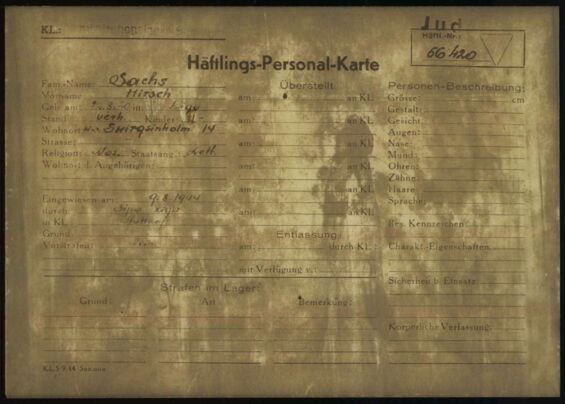 KL.:
Jud
Häftl.-Nr.:
66420
Häftlings-Personal-Karte
Fam.-Name: Sachs
Überstellt
Personen-Beschreibung:
Vorname Hirsch
am: an KL.
Grösse: cm
Geb. am: in:
am: an KL.
Gestalt:
Stand: verh. Kinder
am: an KL.
Gesicht:
Wohnort: 14
am: an KL.
Augen:
Strasse:
Nase:
Religion: Mos. Staatsang.: Lett
am: an KL.
Mund:
Wohnort d. Angehörigen:
am: an KL.
Ohren:
Zähne:
Eingewiesen am: 9.8.1944
am: an KL.
Haare:
durch: Sipo
am: an KL.
Sprache:
in KL.:
Bes. Kennzeichen:
Grund:
Entlassung:
Vorstrafen:
am: durch KL.:
Charakt.-Eigenschaften:
mit Verfügung v.:
Strafen im Lager:
Sicherheit b. Einsatz:
Grund: Art: Bemerkung:
Körperliche Verfassung:
KL 5 9.44